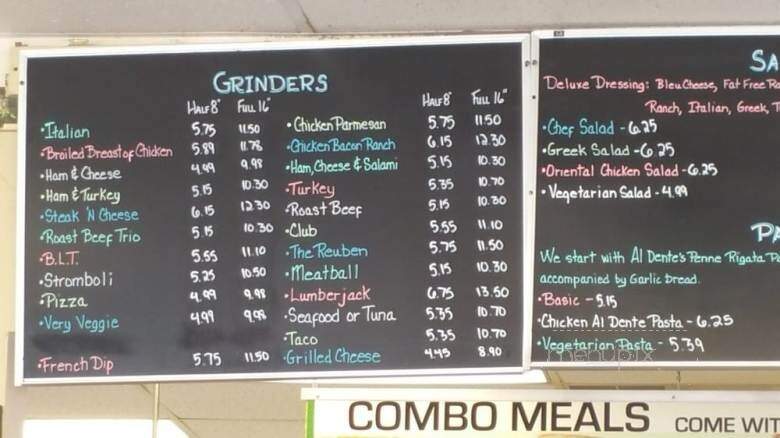 GRINDERS
HALF 8" FULL 16"
•Italian 5.75 11.50
•Broiled Breast of Chicken 5.89 11.78
•Ham & Cheese 4.99 9.98
•Ham & Turkey 5.15 10.30
•Steak 'N Cheese 6.15 12.30
•Roast Beef Trio 5.15 10.30
•B.L.T. 5.55 11.10
•Stromboli 5.25 10.50
•Pizza 4.99 9.98
•Very Veggie 4.99 9.98
•French Dip 5.75 11.50
HALF 8" FULL 16"
•Chicken Parmesan 5.75 11.50
•Chicken Bacon Ranch 6.15 12.30
•Ham, Cheese & Salami 5.15 10.30
•Turkey 5.35 10.70
•Roast Beef 5.15 10.30
•Club 5.55 11.10
•The Reuben 5.75 11.50
•Meatball 5.15 10.30
•Lumberjack 6.75 13.50
•Seafood or Tuna 5.35 10.70
•Taco 5.35 10.70
•Grilled Cheese 4.45 8.90
SA
Deluxe Dressing: Bleu Cheese, Fat Free Ra
Ranch, Italian, Greek, T
•Chef Salad - 6.25
•Greek Salad - 6.25
•Oriental Chicken Salad - 6.25
•Vegetarian Salad - 4.99
PA
We start with Al Dente's Penne Rigata Pa
accompanied by Garlic bread.
•Basic - 5.15
•Chicken Al Dente Pasta - 6.25
•Vegetarian Pasta - 5.39
menupix
COMBO MEALS COME WIT